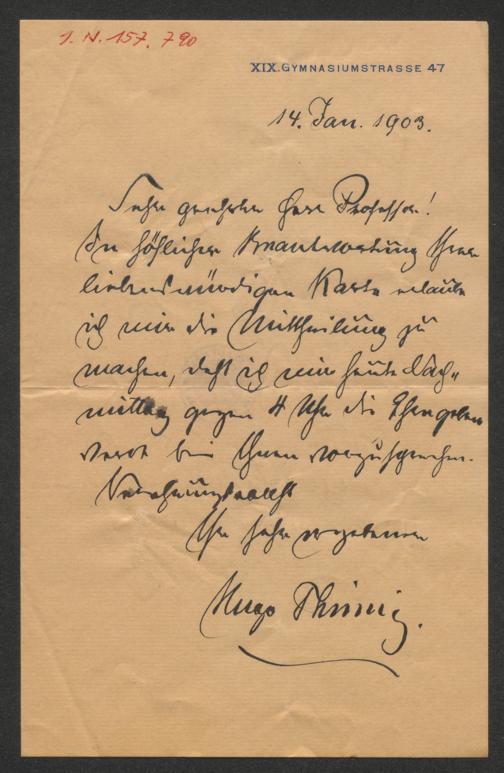 I. N. 157.790
XIX. GYMNASIUMSTRASSE 47
14. Jan. 1903.
Sehr geehrter Herr Professor!
In höflicher Beantwortung Ihrer
liebenswürdigen Karte erlaube
ich mir die Mittheilung zu
machen, daß ich mir heute Nach-
mittag gegen 4 Uhr die Ehre geben
werde bei Ihnen vorzusprechen.
Verehrungsvollst
Ihr sehr ergebener
Hugo Thimig.